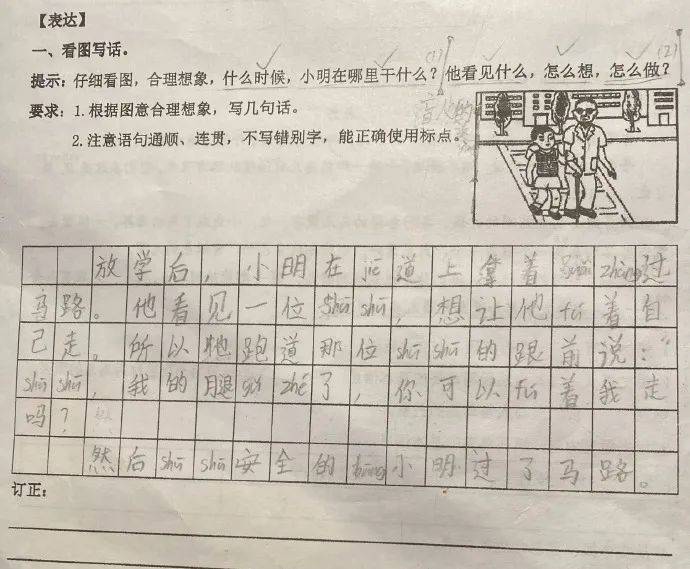 【表达】
一、看图写话。
提示：仔细看图，合理想象，什么时候，小明在哪里干什么？他看见什么，怎么想，怎么做？
(1)
(2)
要求：1.根据图意合理想象，写几句话。
2.注意语句通顺、连贯，不写错别字，能正确使用标点。
放学后，小明在jiē道上拿着 zhàng过
马路。他看见一位shū shū，想让他fú着自
己走。所以他跑道那位shū shū的跟前说：“
shū shū，我的腿gǔ zhé了，你可以fú着我走
吗？
然后shū shū安全的bāng小明过了马路。
订正：